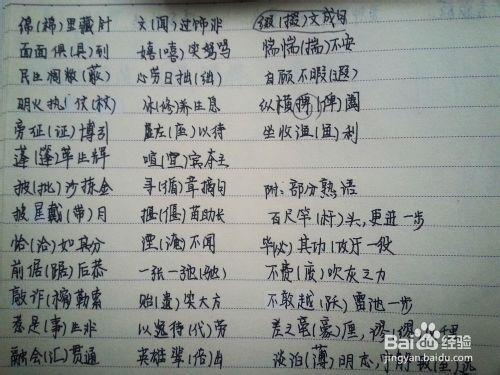 绵(棉)里藏针
面面俱(具)到
民生凋敝(蔽)
明火执仗(杖)
旁征(证)博引
蓬(篷)荜生辉
披(批)沙拣金
披星戴(带)月
恰(洽)如其分
前倨(踞)后恭
敲诈(榨)勒索
惹是(事)生非
融会(汇)贯通
文(闻)过饰非
嬉(嘻)笑怒骂
心劳日拙(绌)
休(修)养生息
虚左(座)以待
喧(宣)宾夺主
寻(循)章摘句
揠(偃)苗助长
湮(淹)不闻
一张一弛(驰)
贻(遗)笑大方
以逸待(代)劳
英雄辈(倍)出
缀(掇)文成句
惴惴(揣)不安
自顾不暇(遐)
纵横捭(俾)阖
坐收渔(鱼)利
附:部分熟语
百尺竿(杆)头,更进一步
毕(必)其功(攻)于一役
不费(废)吹灰之力
不敢越(跃)雷池一步
差之毫(豪)厘,谬里
淡泊(薄)明志,
Baidu经验
jingyan.baidu.com